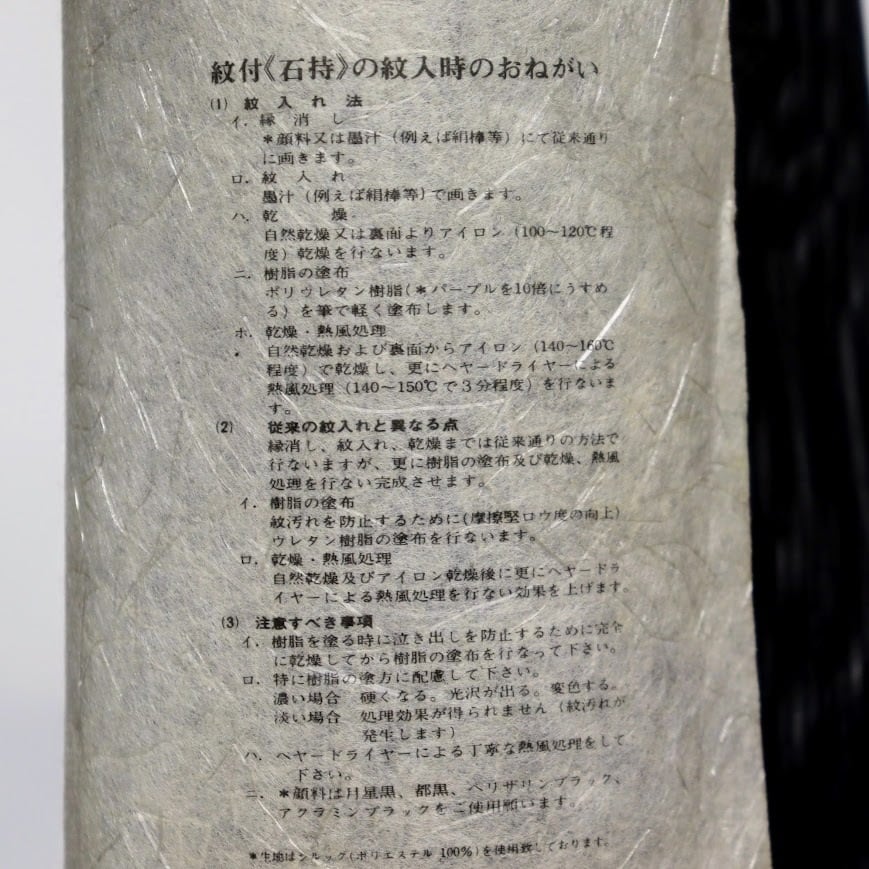 紋付《石持》の紋入時のおねがい
(1) 紋入れ法
イ. 縁消し
＊顔料又は墨汁（例えば絹棒等）にて従来通り
に画きます。
ロ. 紋入れ
墨汁（例えば絹棒等）で画きます。
ハ. 乾燥
自然乾燥又は裏面よりアイロン（100〜120℃程
度）乾燥を行ないます。
ニ. 樹脂の塗布
ポリウレタン樹脂（＊パープルを10倍にうすめ
る）を筆で軽く塗布します。
ホ. 乾燥・熱風処理
自然乾燥および裏面からアイロン（140〜160℃
程度）で乾燥し、更にヘヤードライヤーによる
熱風処理（140〜150℃で３分程度）を行ないま
す。
(2) 従来の紋入れと異なる点
縁消し、紋入れ、乾燥までは従来通りの方法で
行ないますが、更に樹脂の塗布及び乾燥、熱風
処理を行ない完成させます。
イ. 樹脂の塗布
紋汚れを防止するために（摩擦堅ロウ度の向上）
ウレタン樹脂の塗布を行ないます。
ロ. 乾燥・熱風処理
自然乾燥及びアイロン乾燥後に更にヘヤードラ
イヤーによる熱風処理を行ない効果を上げます。
(3) 注意すべき事項
イ. 樹脂を塗る時に泣き出しを防止するために完全
に乾燥してから樹脂の塗布を行なって下さい。
ロ. 特に樹脂の塗方に配慮して下さい。
濃い場合 硬くなる。光沢が出る。変色する。
淡い場合 処理効果が得られません（紋汚れが
発生します）
ハ. ヘヤードライヤーによる丁寧な熱風処理をして
下さい。
ニ. ＊顔料は月星黒、都黒、ヘリザリンブラック、
アクラミンブラックをご使用願います。
＊生地はシルック（ポリエステル 100%）を使用致しております。